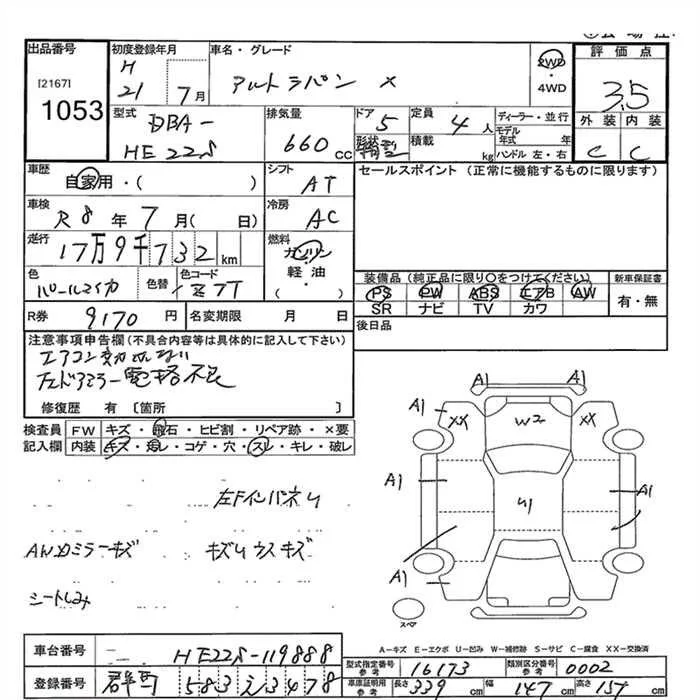 出品番号 初度登録年月 車名・グレード 評価点
[2167] H アルトラパン X 2WD
1053 21 7月 ・4WD 3.5
型式 DBA- 排気量 ドア 5 定員 4人 ディーラー・並行 外装 内装
HE22S 660cc 形状 積載 kg モデル年式 年 ハンドル 左・右 C C
車歴 自家用・( ) シフト AT セールスポイント (正常に機能するものに限ります)
車検 R8年7月( 日) 冷房 AC
走行 17万9千732km 燃料 ガソリン
軽油・( )
色 パールマイカ 色替 色コード Z7T
装備品 (純正品に限り○をつけてください) 新車保証書
PS PW ABS エアB AW 有・無
SR ナビ TV カワ
R券 9170円 名変期限 月 日 後日品
注意事項申告欄 (不具合内容等は具体的に記入して下さい)
エアコン効かない
左ドアミラー電格不良
修復歴 有 〔箇所 〕
検査員 FW キズ・飛石・ヒビ割・リペア跡・×要
記入欄 内装 キズ・汚レ・コゲ・穴・スレ・キレ・破レ
A1 A1
A1 XX W2 XX
A1 U1 A1
A1
A1
スペア
左FインパネU
AWカミラーキズ キズUウスキズ
シートしみ
A-キズ E-エクボ U-凹み W-補修跡 S-サビ C-腐食 XX-交換済
車台番号 HE22S-119888 型式指定番号 参考 16173 類別区分番号 参考 0002
登録番号 群馬 583 え 3478 車庫証明用 参考 長さ 339cm 幅 147cm 高さ 151cm